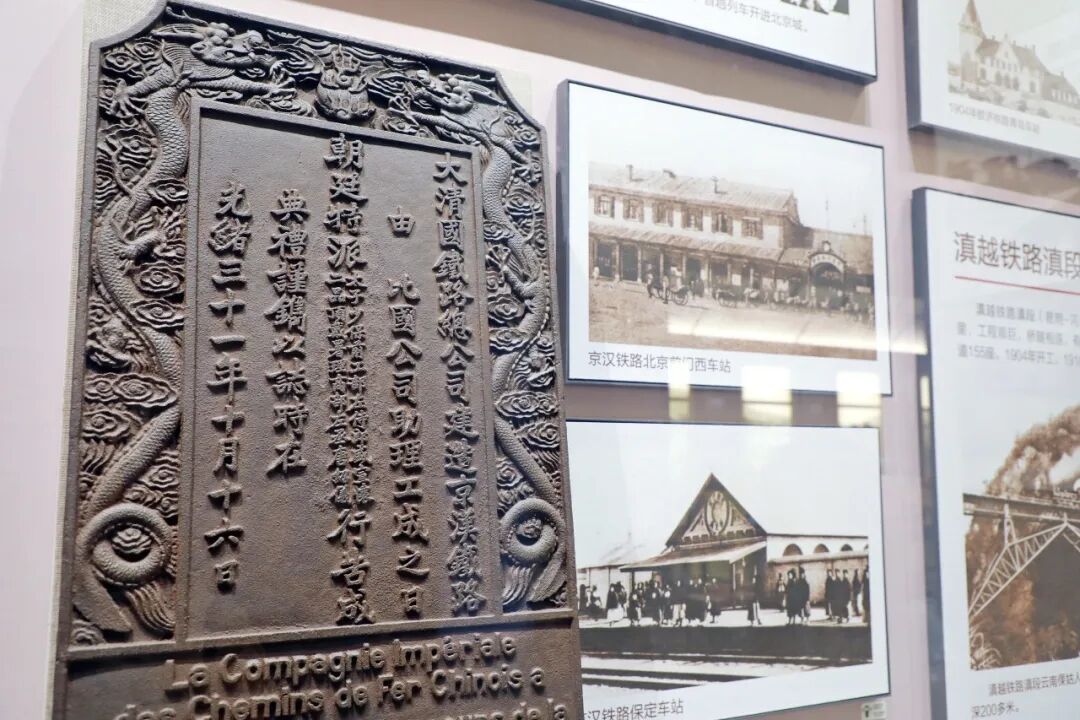 大清國鐵路總公司建造京漢鐵路
由 比國公司助理工成之日
朝廷特派
行告成
典禮謹鐫以誌時在
光緒三十一年十月十六日
La Compagnie Impériale
des Chemins de Fer Chinois a
列车开进北京城。
京汉铁路北京前门西车站
京汉铁路保定车站
1904年胶济铁路青岛车站
滇越铁路滇段
滇越铁路滇段（昆明—河
里，工程艰巨，桥隧相连，
道155座。1904年开工，191
滇越铁路滇段云南倮姑人
深200多米。